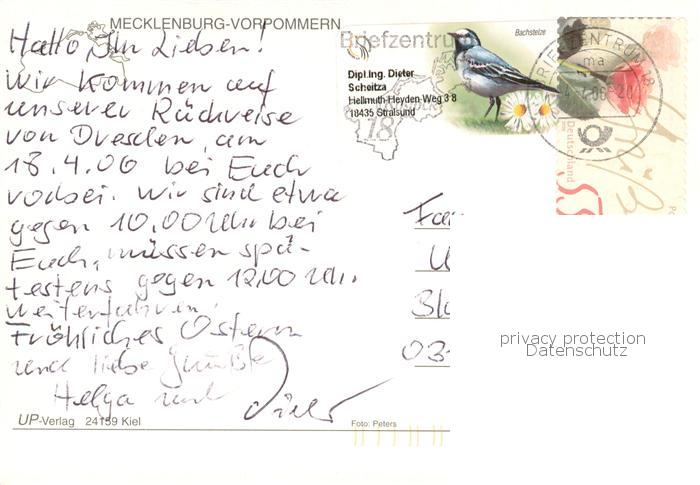 MECKLENBURG-VORPOMMERN
Hallo Ihr Lieben!
Wir kommen auf
unserer Rückreise
von Dresden, am
18.4.06 bei Euch
vorbei. Wir sind etwa
gegen 10.00 Uhr bei
Euch, müssen spä-
testens gegen 12.00 Uhr.
weiterfahren.
Fröhliches Ostern
und liebe Grüße
Helga und Dieter
UP-Verlag 24159 Kiel
Foto: Peters
Briefzentrum
18
Bachstelze
Dipl.Ing. Dieter
Scheitza
Hellmuth-Heyden-Weg 3 8
18435 Stralsund
BRIEFZENTRUM 18
ma
Deutschland
55
Fa
Bl
03
privacy protection
Datenschutz